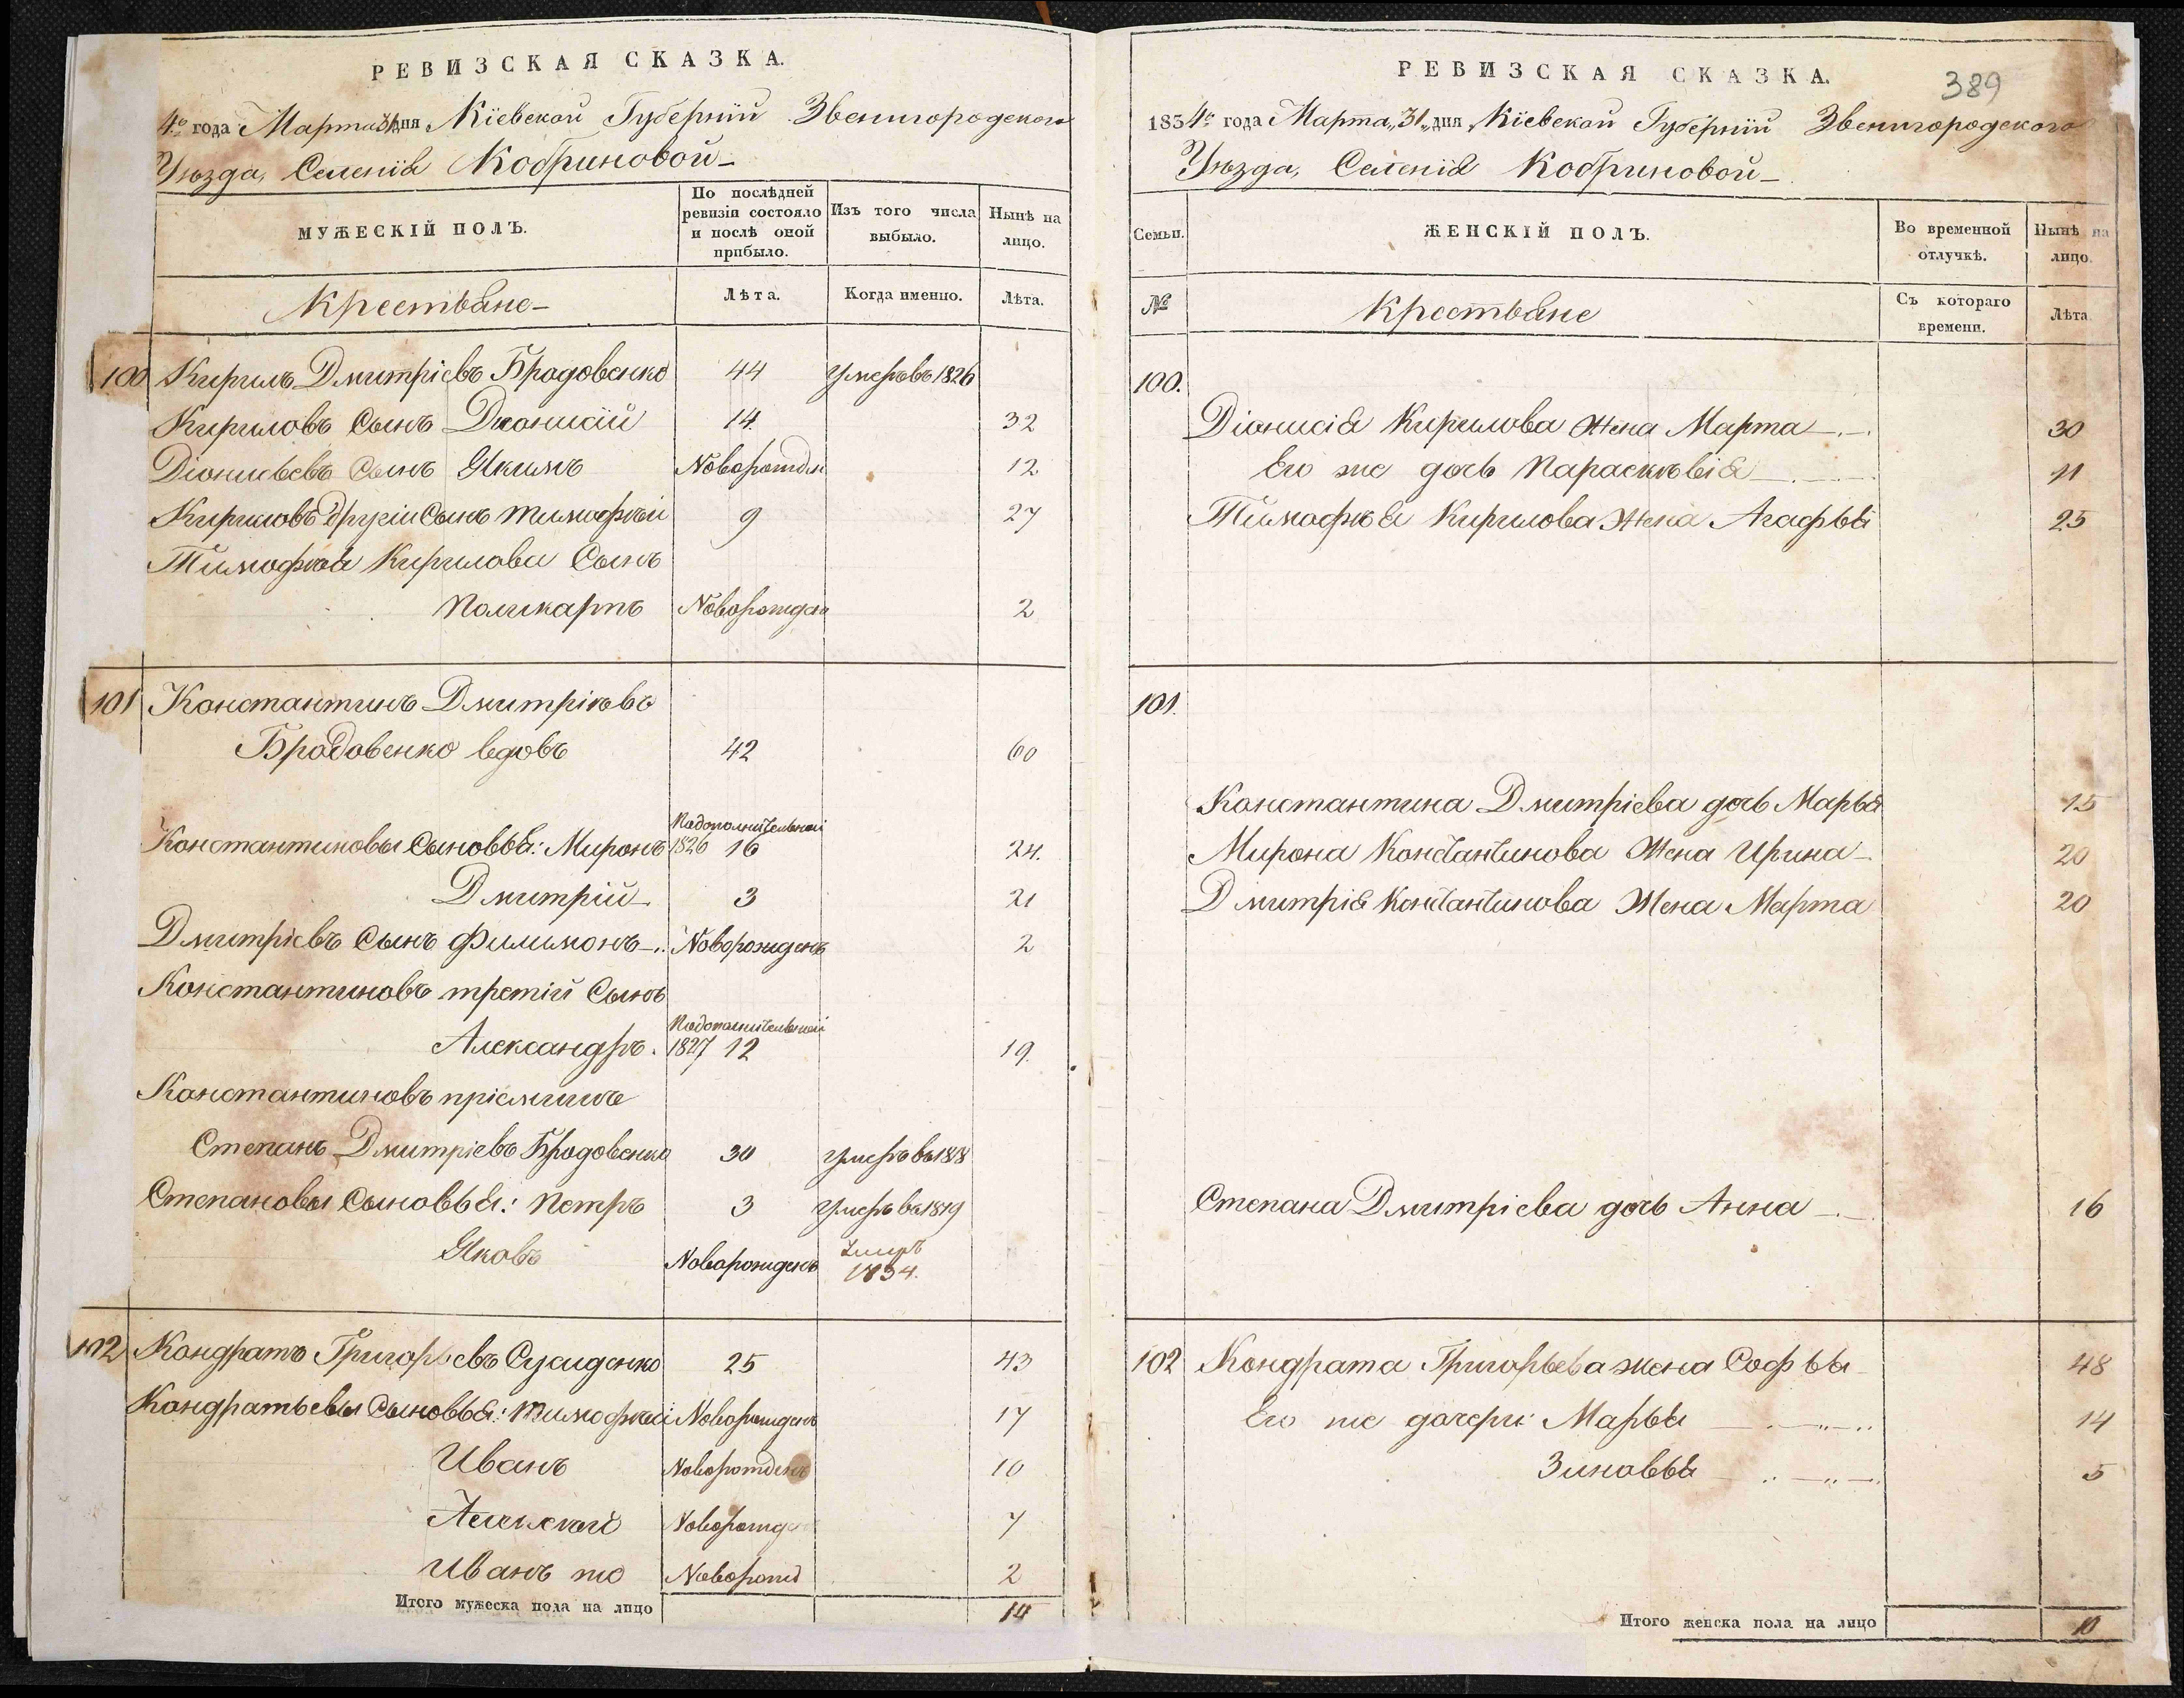 РЕВИЗСКАЯ СКАЗКА.
4го года Марта 31 дня Кіевской Губерніи Звенигородского
Уѣзда, Селенія Кобриновой
МУЖЕСКІЙ ПОЛЪ.
По послѣдней ревизіи состояло и послѣ оной прибыло.
Изъ того числа выбыло.
Нынѣ на лицо.
Крестьяне
Лѣта.
Когда именно.
Лѣта.
100 Кирилъ Дмитріевъ Бродовенко 44 Умеръ въ 1826
Кириловъ Сынъ Діонисій 14. 32
Діонисьевъ Сынъ Якимъ Новорожден 12.
Кириловъ другій Сынъ Тимофѣй 9 27
Тимофѣя Кирилова Сынъ
Поликарпъ Новорожден 2
101 Константинъ Дмитріевъ
Бродовенко вдовъ 42 60
По дополнительной
Константиновы Сыновья: Миронъ 1826 16 24.
Дмитрій 3 21
Дмитріевъ Сынъ Филимонъ Новорожденъ 2
Константиновъ третій Сынъ
По дополнительной
Александръ. 1827 12 19.
Константиновъ пріемишъ
Степанъ Дмитріевъ Бродовенко 30 Умеръ въ 1818
Степановы Сыновья: Петръ 3 Умеръ въ 1819
Яковъ Новорожденъ Умеръ 1834.
102 Кондратъ Григорьевъ Сусиденко 25 43
Кондратьевы Сыновья: Тимофѣй Новорожденъ 17
Иванъ Новорожденъ 10
Алексѣй Новорожден 7
Иванъ же Новорожд 2
Итого мужеска пола на лицо 14
РЕВИЗСКАЯ СКАЗКА.
389
1834го года Марта „31„ дня Кіевской Губерніи Звенигородского
Уѣзда, Селенія Кобриновой
Семьи.
ЖЕНСКІЙ ПОЛЪ.
Во временной отлучкѣ.
Нынѣ на лицо.
№
Крестьяне
Съ котораго времени.
Лѣта.
100.
Діонисія Кирилова Жена Марта 30
Его же дочь Параскѣвія 11
Тимофѣя Кирилова Жена Агафья 25
101.
Константина Дмитріева дочь Марья 15
Мирона Константинова Жена Ирина 20
Дмитрія Константинова Жена Марта 20
Степана Дмитріева дочь Анна 16
102 Кондрата Григорьева жена Софья 48
Его же дочери: Марья 14
Зиновья 5
Итого женска пола на лицо 10